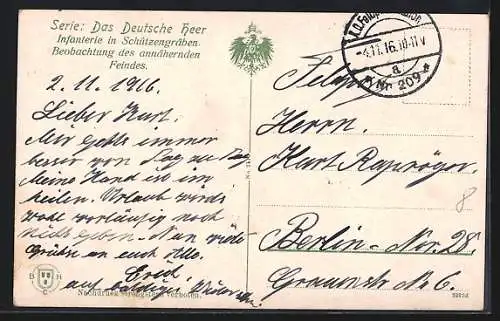 Serie: Das Deutsche Heer
Infanterie in Schützengräben.
Beobachtung des annähernden
Feindes.
2.11.1916.
Lieber Kurt.
Mir gehts immer
besser von Tag zu Tag
Meine Hand ist im
heilen. Urlaub wirds
wohl vorläufig noch
nicht geben. Nun viele
Grüße an euch alle.
Fred.
auf baldiges Wiedersehn.
Nachdruck strengstens verboten.
-4.11.16.10-11V
a
Nr. 209
Feldpost
Herrn.
Kurt
Berlin-Nor. 28.
No. 6.
8